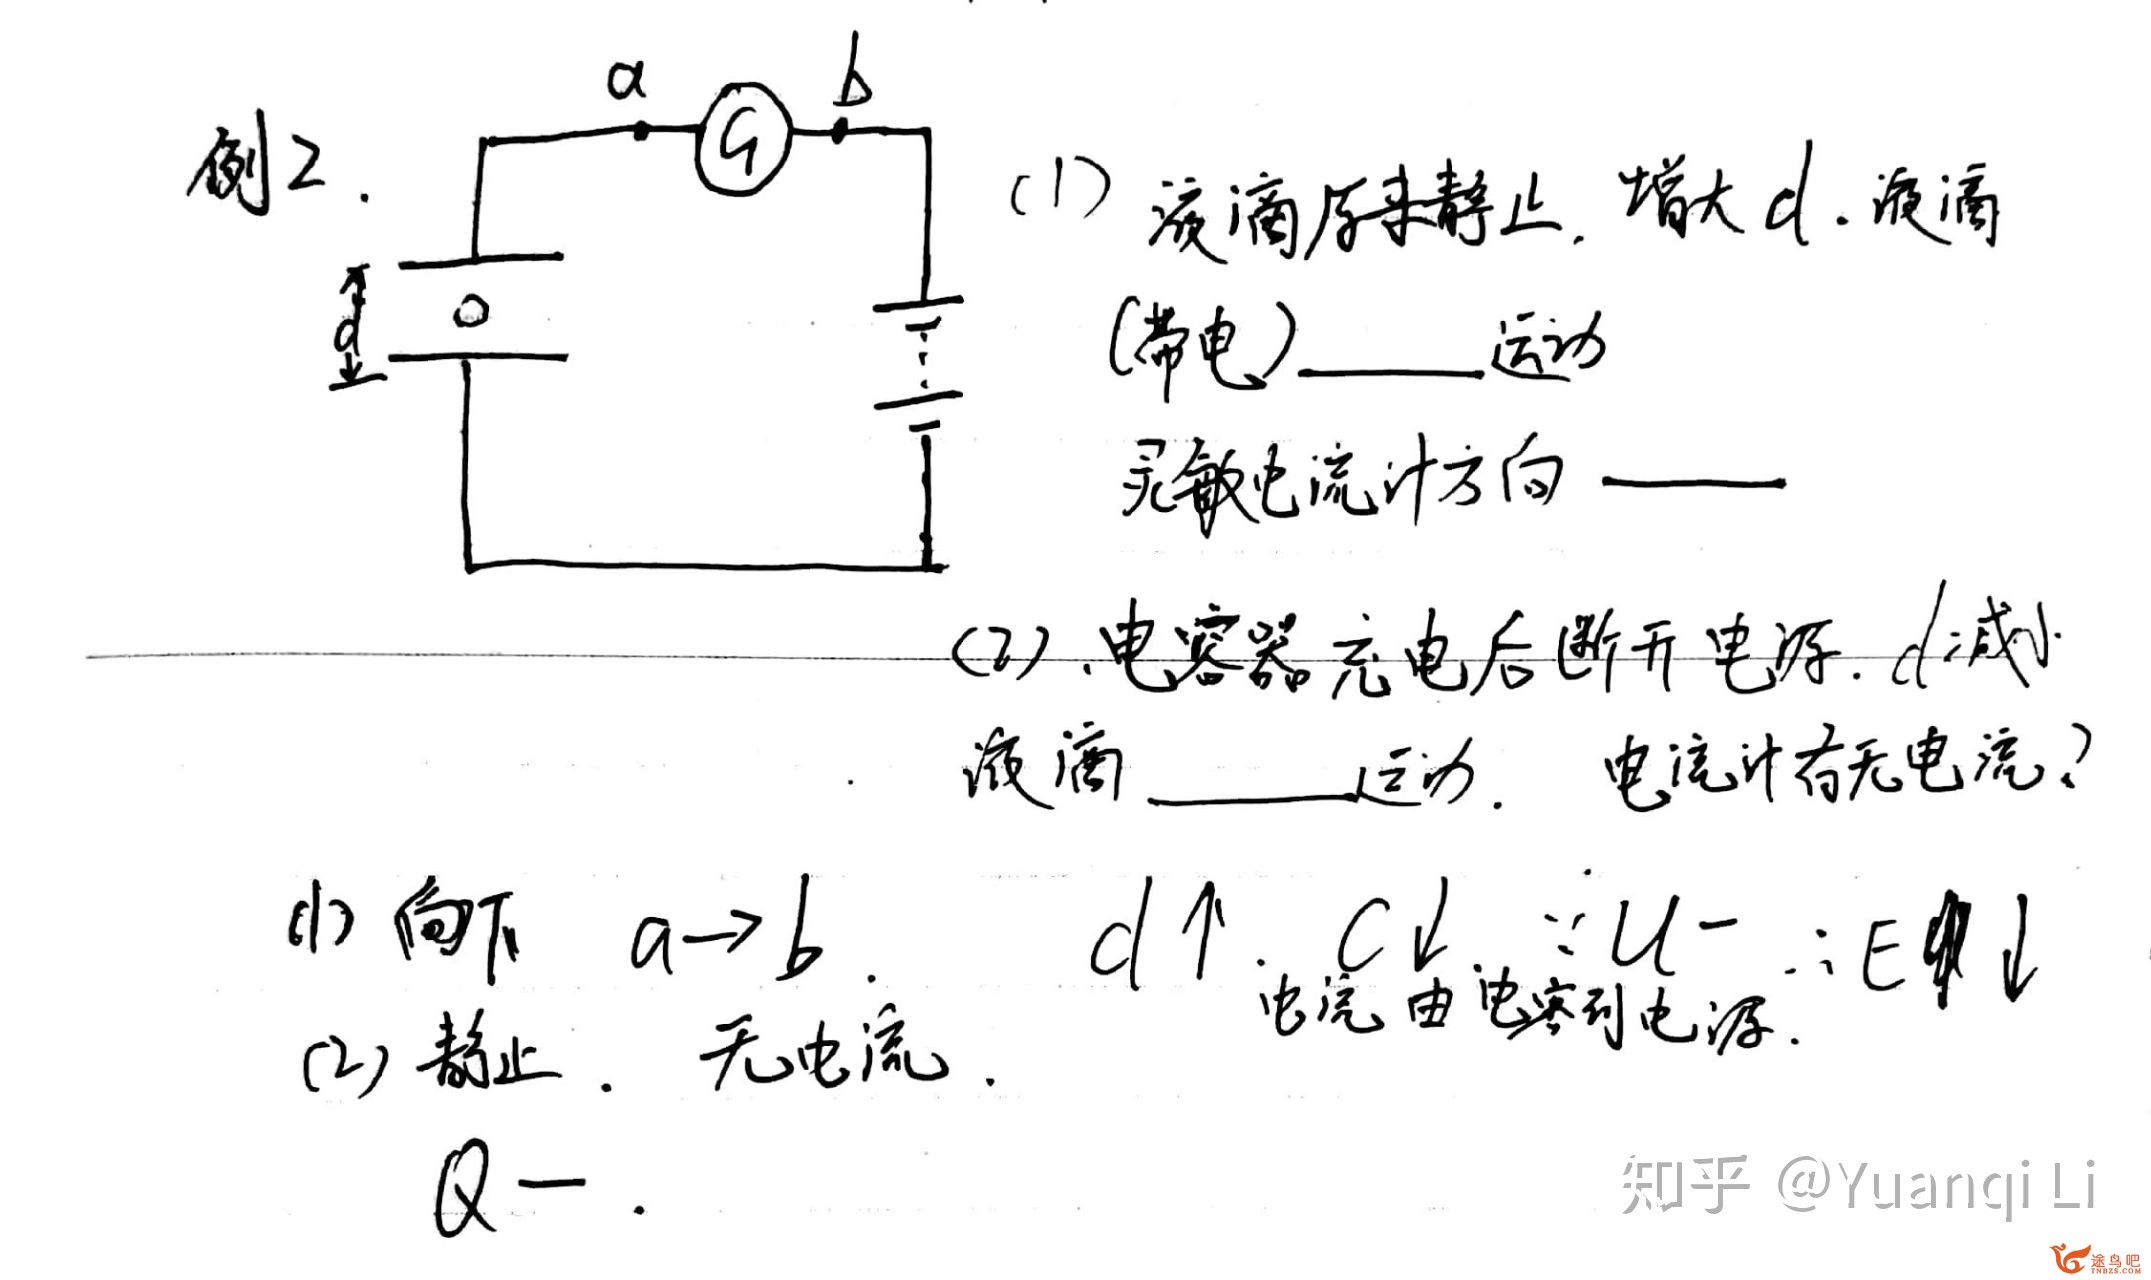 例2.
a
G
b
d
(1) 液滴原来静止. 增大d. 液滴
(带电)______运动
灵敏电流计方向______
(2). 电容器充电后断开电源. d减小
液滴______运动. 电流计有无电流?
(1) 向下 a→b. d↑. C↓. ∵U一 ∴E↓
电流由电容到电源.
(2) 静止. 无电流.
Q一.
知乎 @Yuanqi Li
途鸟吧
TNBZS.COM